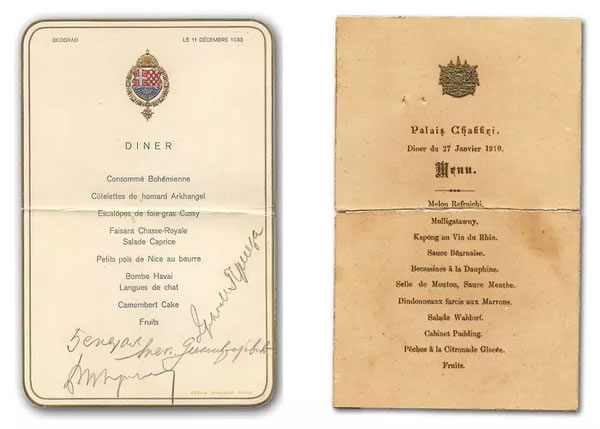 BEOGRAD LE 11 DÉCEMBRE 1933
DINER
Consommé Bohémienne
Côtelettes de homard Arkhangel
Escalopes de foie-gras Cussy
Faisans Chasse-Royale
Salade Caprice
Petits pois de Nice au beurre
Bombe Havai
Langues de chat
Camembert Cake
Fruits
Palais Chakkri.
Diner du 27 Janvier 1910.
Menu.
Melon Refraichi.
Mulligatawny.
Kapong au Vin du Rhin.
Sauce Béarnaise.
Becassines à la Dauphine.
Selle de Mouton, Sauce Menthe.
Dindonneaux farcis aux Marrons.
Salade Waldorf.
Cabinet Pudding.
Pêches à la Citronade Glacée.
Fruits.